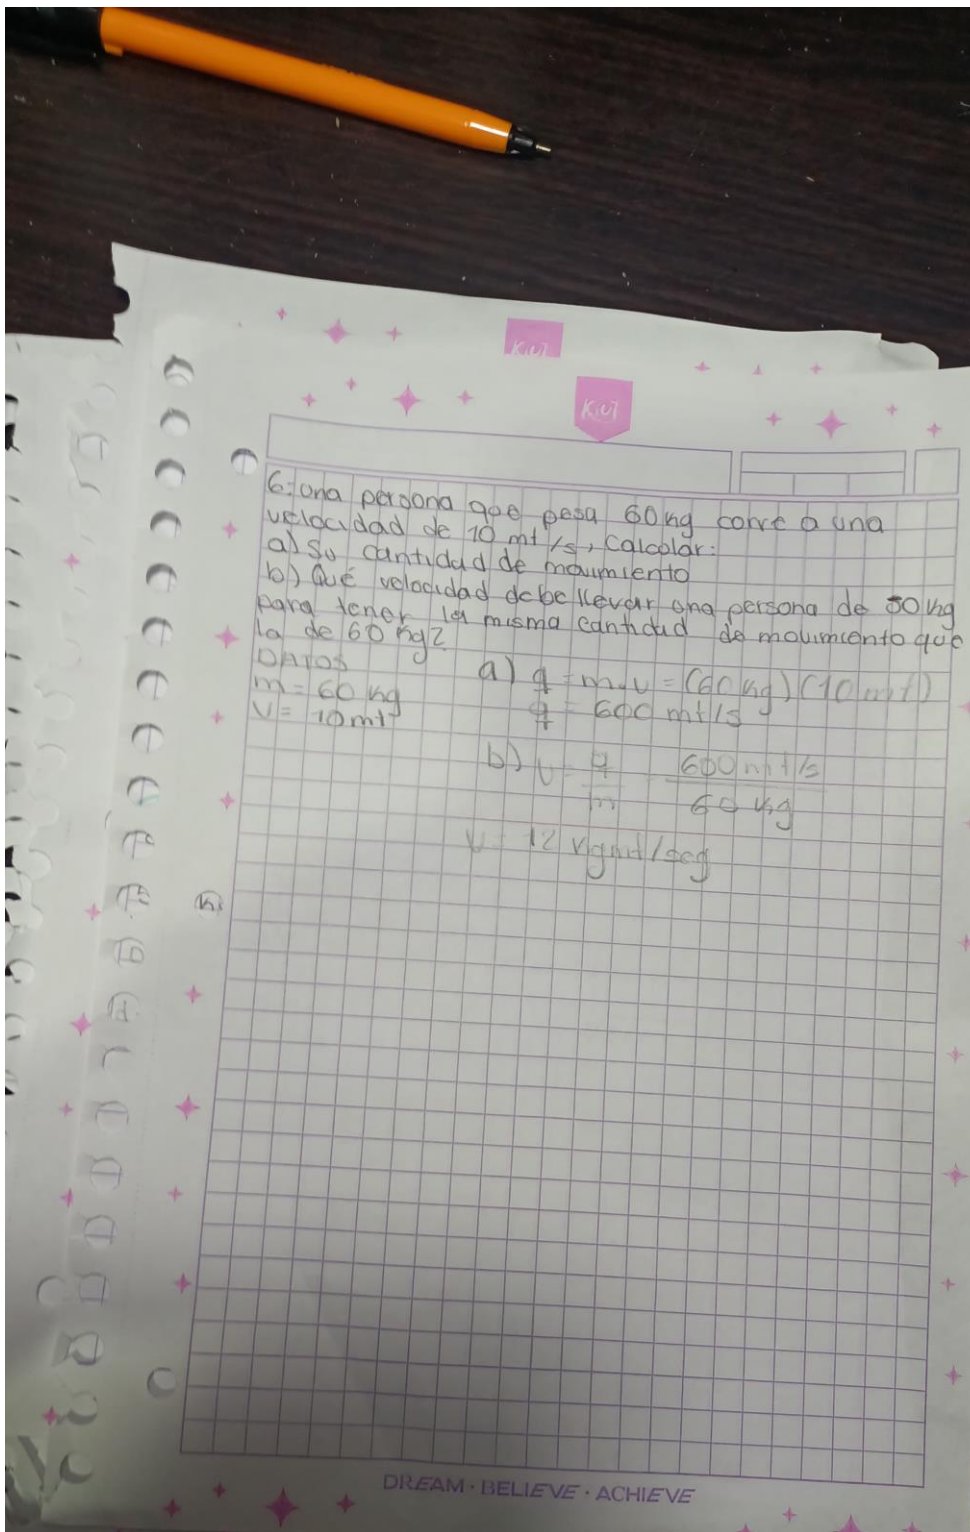 Kiut
Kiut
6. una persona que pesa 60 kg corre a una
velocidad de 10 mt/s, calcolar:
a) su cantidad de movimiento
b) Qué velocidad debe llevar una persona de 50 kg
para tener la misma cantidad de movimiento que
la de 60 kg?
DATOS
m = 60 kg
V = 10 mt
a) q = m.v = (60 kg) (10 mt)
q = 600 mt/s
b) v = q/m 600 mt/s / 60 kg
v = 12 kgmt/seg
DREAM · BELIEVE · ACHIEVE